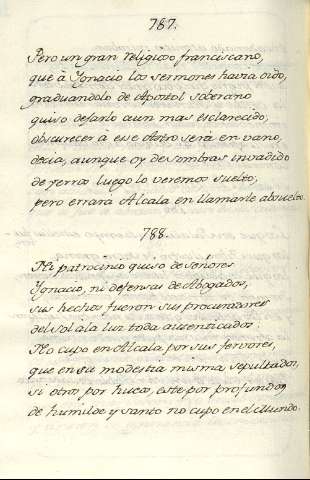 787.
Pero un gran religioso franciscano,
que à Ygnacio los sermones havia oido,
graduandolo de Apostol soberano
quiso dejarlo aun mas esclarecido;
obscurecer à ese Astro serà en vano,
decia, aunque oy de sombras invadido
de yerros luego lo veremos suelto,
pero errarà Alcala en llamarle absuelto.
788.
Ni patrocinio quiso de señores
Ygnacio, ni defensas de Abogados,
sus hechos fueron sus procuradores
del sol a la luz toda autenticados
No cupo en Alcala, por sus fervores,
que en su modestia misma sepultados,
si otros por hueco, este por profundo,
de humilde y santo no cupo en el Mundo.